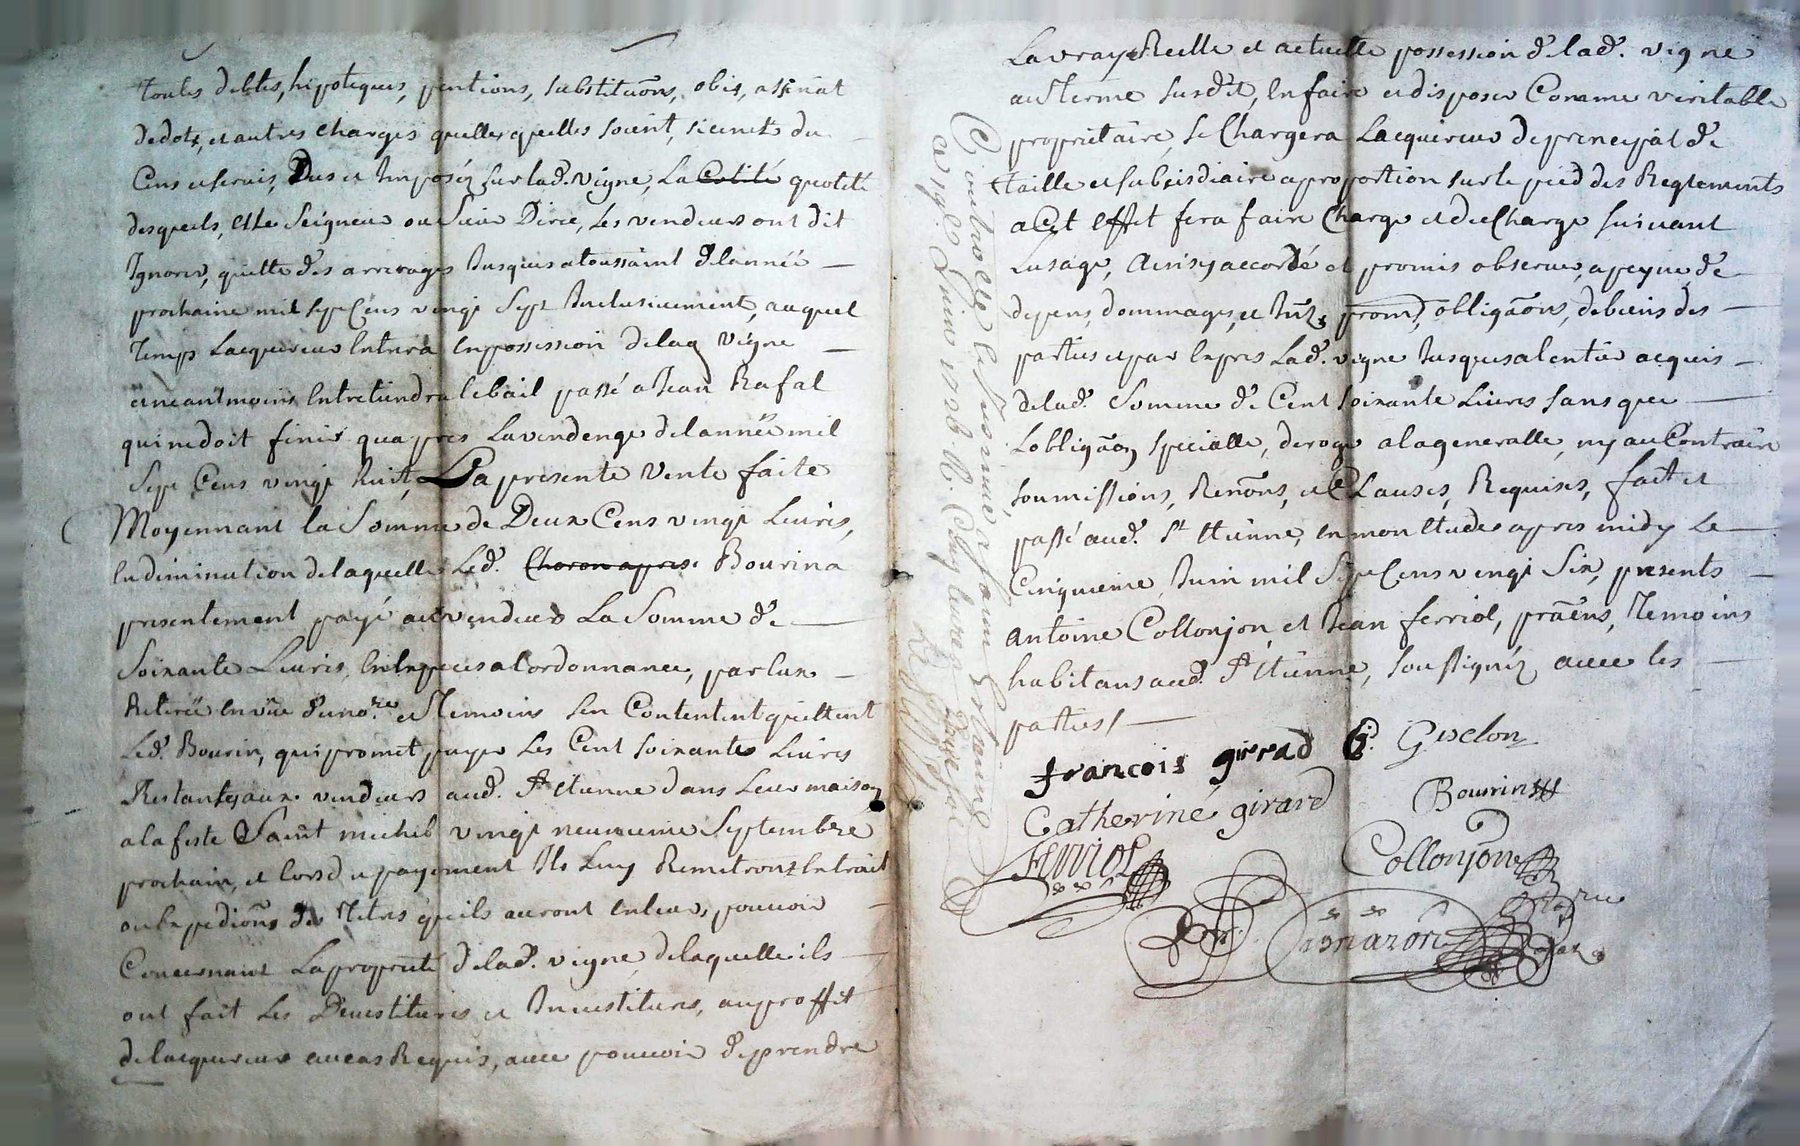 toutes debtes, hipoteques, pentions, substituõns, obis, assinat
dedots, et autres charges quelles quelles soient, si ce nest du
Cens et servis, Dus et Imposéz sur lad. vigne, La Cotité quotité
desquels, et le Seigneur ou Sieur Direc, les vendeurs ont dit
Ignorer, quitte des arrerages Jusques a toussaint de lannée
prochaine mil sept Cens vingt Sept Inclusivement, auquel
Temps Lacquereur Entrera En possession de lad vigne
et neantmoins Entretiendra le bail passé a Jean Rafat
qui ne doit finir qua pres La vendenge de lannée mil
Sept Cens vingt huit, La presente vente faite
Moyennant la Somme de Deux Cens vingt Livres,
En diminution de laquelle Led. Bourin a
presentement payé au vendeurs La Somme de
Soixante Livres, En Especes a lordonnance, par Eux
Retirée En vüe de un no.re et Temoins sen Contentent quittent
Led. Bourin, qui promet payer Les Cent soixante Livres
Restantes aux vendeurs aud. St Etienne dans Leur maison
a la feste Saint michel vingt neuvieme Septembre
prochain, et lors du payement Ils Luy Remetront Extrait
ou Expediõns des Titres quils auront En leur pouvoir
Concernant La proprieté de lad. vigne de laquelle ils
ont fait Les Devestitures et Investitures, au proffit
de lacquereur au cas Requis, avec pouvoir de prendre
La vraye Reelle et actuelle possession de lad. vigne
au Terme susdit, En faire et disposer Comme veritable
proprietaire, se Chargera Lacquereur de principal de
taille et subsisdiaire a proportion sur le pied des Reglements
a Cet effet fera faire Charge et deCharge suivant
Lusage, Ainsy accordé et promis observer, a peyne de
depens, dommages, et Int.s prom, obligãons, de biens des
parties et par Expres Lad. vigne Jusques a lentier acquis
de lad. Somme de Cent soixante Livres sans que
Lobligãon specialle, deroge a la generalle, ny au Contraire
soumissions, Renõns, et Clauses, Requises, fait et
passé aud. St Etienne, En mon Etude apres midy Le
Cinquieme Juin mil Sept Cens vingt Six, presents
Antoine Collonjon, et Jean ferriol, prãens, Temoins
habitans aud. St Etienne, soussignéz avec les
parties /
Controllé a St Etienne
ce Juin 1726 R. livres
francois girard
Catherine girard
Bourin
ferriol
Collonjon